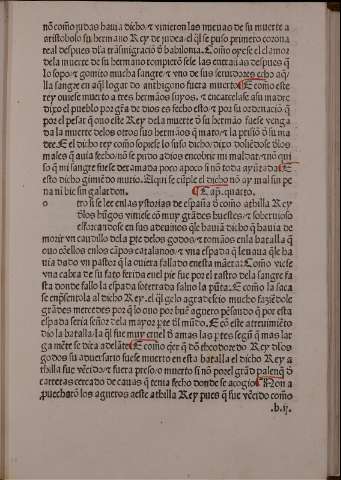 nõ como judas hauia dicho. ⁊ vinieron las nueuas de su muerte a
aristobolo su hermano Rey de judea. el q̃l se puso primero corona
real despues dla trãsmigraciõ d̃ babilonia. Como oyese el clamor
dela muerte de su hermano rompierõ sele las entrañas despues q̃
lo sopo. ⁊ gomito mucha sangre. ⁊ vno de sus seruidores echo aq̃
lla sangre en aq̃l logar do anthigono fuera muerto. E como este
rey ouiese muerto a tres hermanos suyos. ⁊ encarcelase a su madre
dixo el pueblo por gr̃a de dios es fecho esto. ⁊ por su ordenaciõ q̃
por el pesar q̃ ouo este Rey dela muerte d̃ su hermão fuese venga
da la muerte delos otros sus hermãos q̃ mato. ⁊ la prisiõ d̃ su ma
dre. E el dicho rey como sopiese lo suso dicho. dixo doliẽdose d̃los
males q̃ auia fecho nõ se pudo a dios encobrir mi maldat. ⁊ nõ qui
so q̃ mi sangre fuese derramada poco a poco si nõ toda ayũtada. E
esto dicho gimiẽdo murio. Aqui se cũple el dicho nõ ay mal sin pe
na ni bien sin galardon. Cap. quarto.
o tro si se lee en las ystorias de españa q̃ como athilla Rey
d̃los hũgos viniese cõ muy grãdes huestes. ⁊ soberuioso
esforçandose en sus adeuinos q̃le hauiã dicho q̃ hauia de
morir vn caudillo dela pte delos godos. ⁊ tomãos en la batalla q̃
ouo cõellos en los cãpos catalanos. ⁊ vna espada q̃ leuaua q̃le ha
uia dado vn pastor q̃ la ouiera fallado en esta mãera. Como viese
vna cabra de su fato ferida en el pie fue por el rastro dela sangre fa
sta donde fallo la espada soterrada saluo la pũta. E como la saca
se enp̃sentola al dicho Rey. el q̃l gelo agradescio mucho faziẽdole
grãdes mercedes por q̃ lo ouo por buẽ aguero pẽsando q̃ por esta
espada seria señor dela mayor pte d̃l mũdo. E cõ este atreuimiẽto
dio la batalla. la q̃l fue muy cruel d̃ amas las ptes segũ q̃ mas lar
ga mẽte se dira adelãte. E como q̃er q̃ dõ theodoredo Rey dlos
godos su aduersario fuese muerto en esta batalla el dicho Rey a
thilla fue vẽcido. ⁊ fuera preso o muerto si nõ por el grãd palenq̃ d̃
carretas cercado de cauas q̃ tenia fecho donde se acogio. Non a
puecharõ los agueros a este athilla Rey pues q̃ fue vẽcido como
.b.ij.